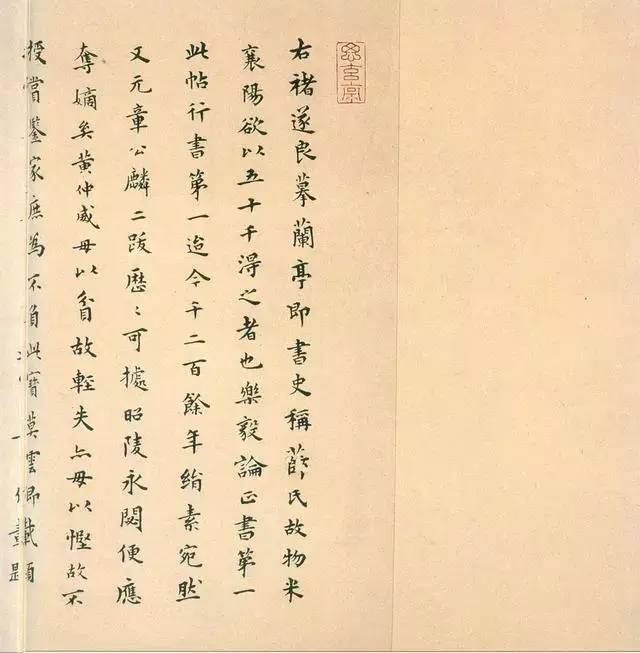 右褚遂良摹蘭亭即書史稱薛氏故物米
襄陽欲以五十千得之者也樂毅論正書第一
此帖行書第一迨今千二百餘年絹素宛然
又元章公麟二跋歷〻可據昭陵永閟便應
奪嫡矣黃仲威毋以貧故輕失亦毋以慳故不
授賞鑒家庶為不負此寶莫雲卿